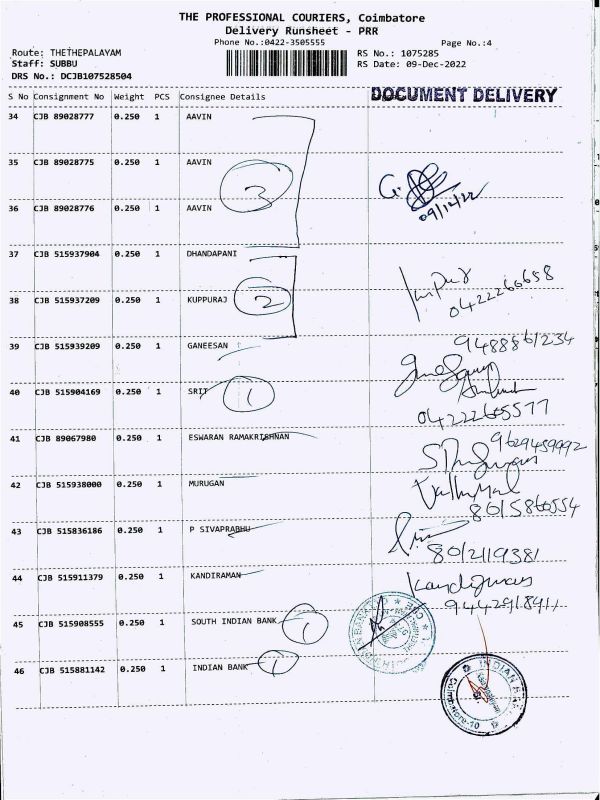 THE PROFESSIONAL COURIERS, Coimbatore
Delivery Runsheet - PRR
Phone No.:0422-3505555
Page No.:4
Route: THETHEPALAYAM
RS No.: 1075285
Staff: SUBBU
RS Date: 09-Dec-2022
DRS No.: DCJB107528504
S No Consignment No Weight PCS Consignee Details
DOCUMENT DELIVERY
34 CJB 89028777 0.250 1 AAVIN
35 CJB 89028775 0.250 1 AAVIN
3
09/12/22
36 CJB 89028776 0.250 1 AAVIN
37 CJB 515937904 0.250 1 DHANDAPANI
38 CJB 515937209 0.250 1 KUPPURAJ
2
04222266658
39 CJB 515939209 0.250 1 GANEESAN
9488861234
40 CJB 515904169 0.250 1 SRIT
1
04222605577
41 CJB 89067980 0.250 1 ESWARAN RAMAKRISHNAN
9629459992
42 CJB 515938000 0.250 1 MURUGAN
8015860554
43 CJB 515836186 0.250 1 P SIVAPRABHU
8012119381
44 CJB 515911379 0.250 1 KANDIRAMAN
45 CJB 515908555 0.250 1 SOUTH INDIAN BANK
1
46 CJB 515881142 0.250 1 INDIAN BANK
1
INDIAN BANK
Coimbatore-10